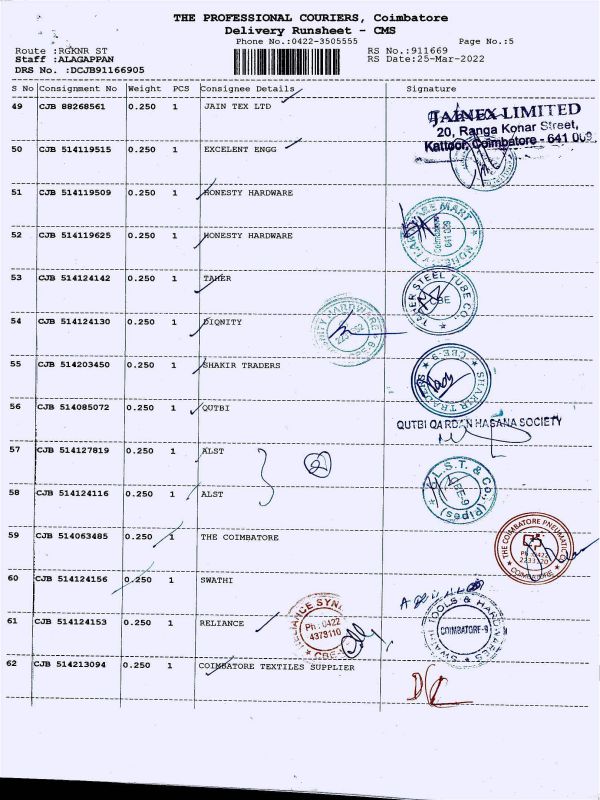 THE PROFESSIONAL COURIERS, Coimbatore
Delivery Runsheet - CMS
Phone No.:0422-3505555 Page No.:5
Route :RGKNR ST RS No.:911669
Staff :ALAGAPPAN RS Date:25-Mar-2022
DRS No. :DCJB91166905
S No Consignment No Weight PCS Consignee Details Signature
49 CJB 88268561 0.250 1 JAIN TEX LTD
JAINEX LIMITED
20, Ranga Konar Street,
Kattoor, Coimbatore - 641 009
50 CJB 514119515 0.250 1 EXCELENT ENGG
51 CJB 514119509 0.250 1 HONESTY HARDWARE
52 CJB 514119625 0.250 1 HONESTY HARDWARE
HONESTY HARDWARE MART
Coimbatore
641 009
53 CJB 514124142 0.250 1 TAHER
TAHER STEEL TUBE CO.
CBE
54 CJB 514124130 0.250 1 DIQNITY
55 CJB 514203450 0.250 1 SHAKIR TRADERS
SHAKIR TRADERS CBE-9
56 CJB 514085072 0.250 1 QUTBI
QUTBI QARDAN HASANA SOCIETY
57 CJB 514127819 0.250 1 ALST
2
58 CJB 514124116 0.250 1 ALST
A.L.S.T. & Co., (Pipes)
CBE-9
59 CJB 514063485 0.250 1 THE COIMBATORE
THE COIMBATORE PNEUMATICS
Ph : 0422
2233120
COIMBATORE
60 CJB 514124156 0.250 1 SWATHI
SWATHI TOOLS & HARDWARES
COIMBATORE-9
61 CJB 514124153 0.250 1 RELIANCE
RELIANCE SYN
Ph : 0422
4373110
CBE
62 CJB 514213094 0.250 1 COIMBATORE TEXTILES SUPPLIER